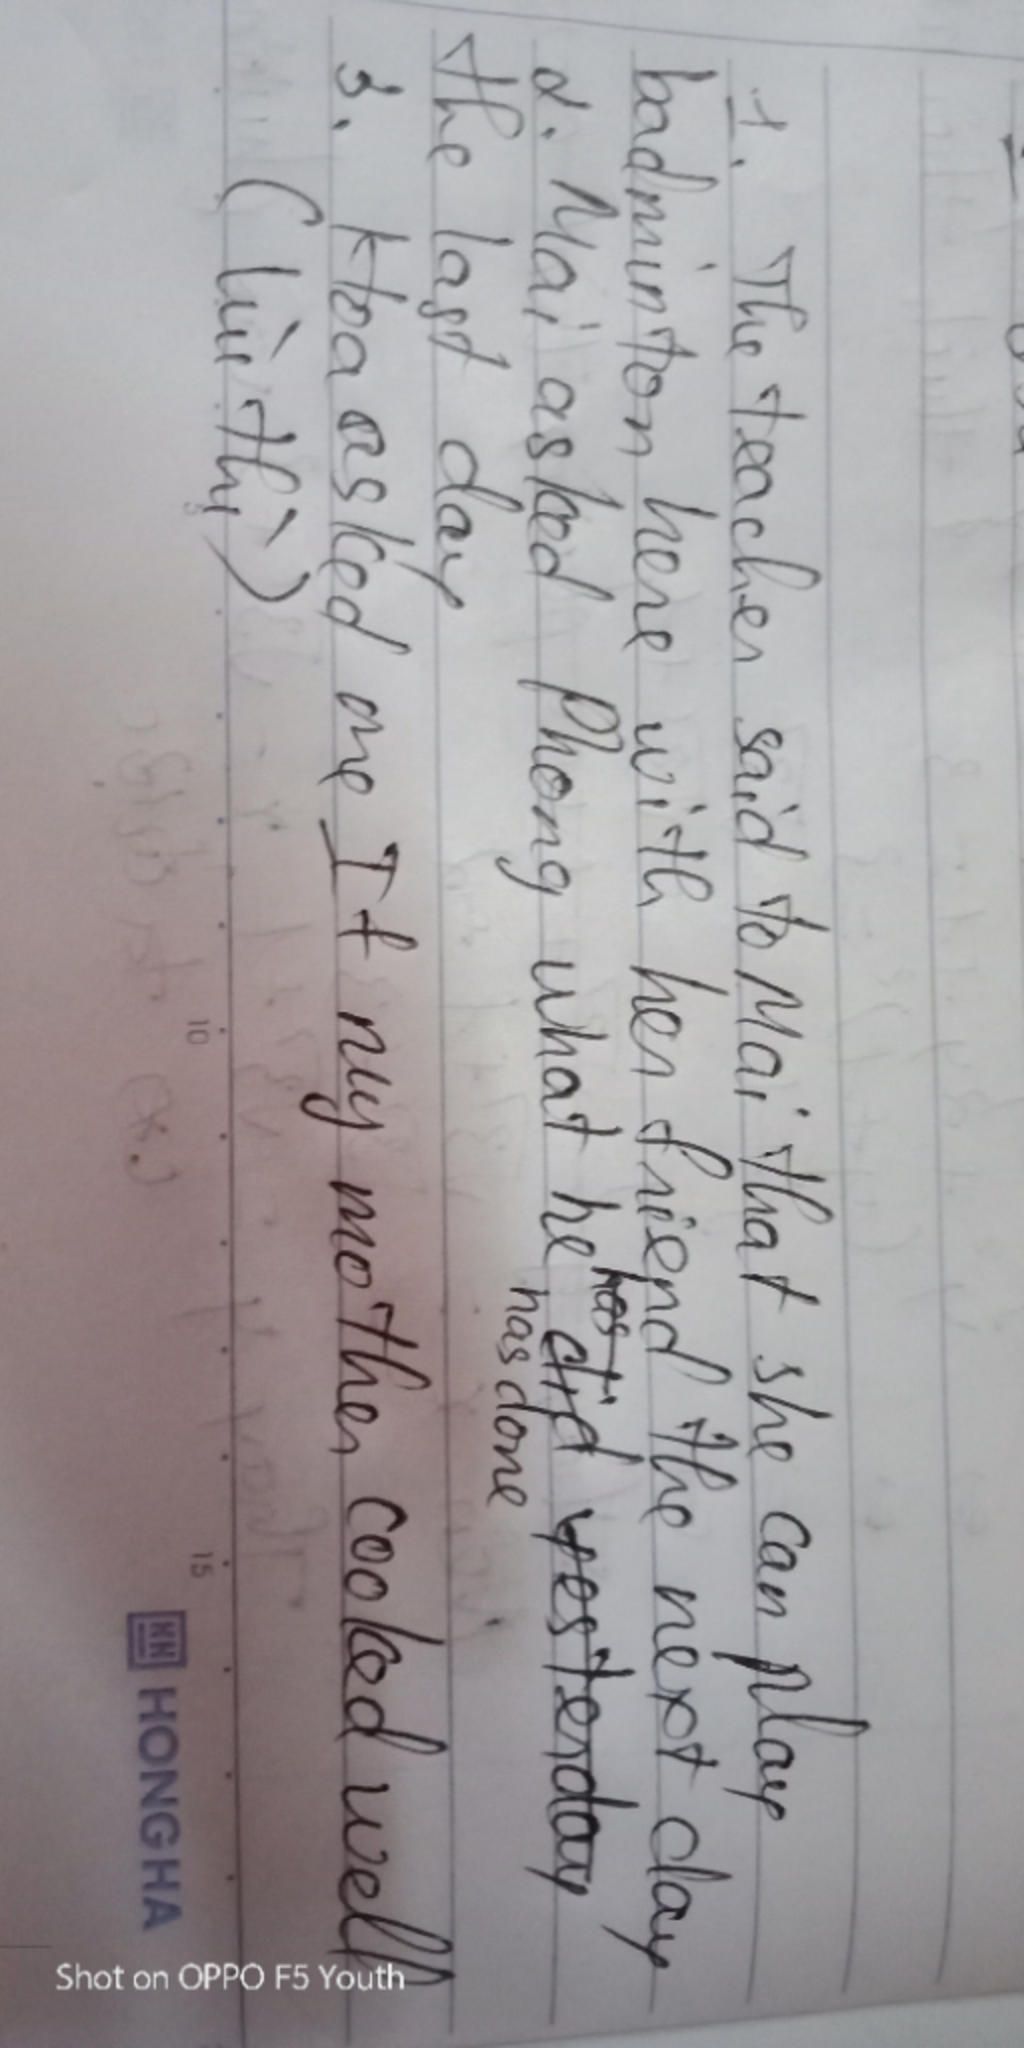 1. The teacher said to Mai that she can play
badminton here with her friend the next day
2. Mai asked Phong what he has did yesterday
has done
the last day
3. Hoa asked me If my mother cooked well
(lùi thì)
10
15
HONGHA
Shot on OPPO F5 Youth